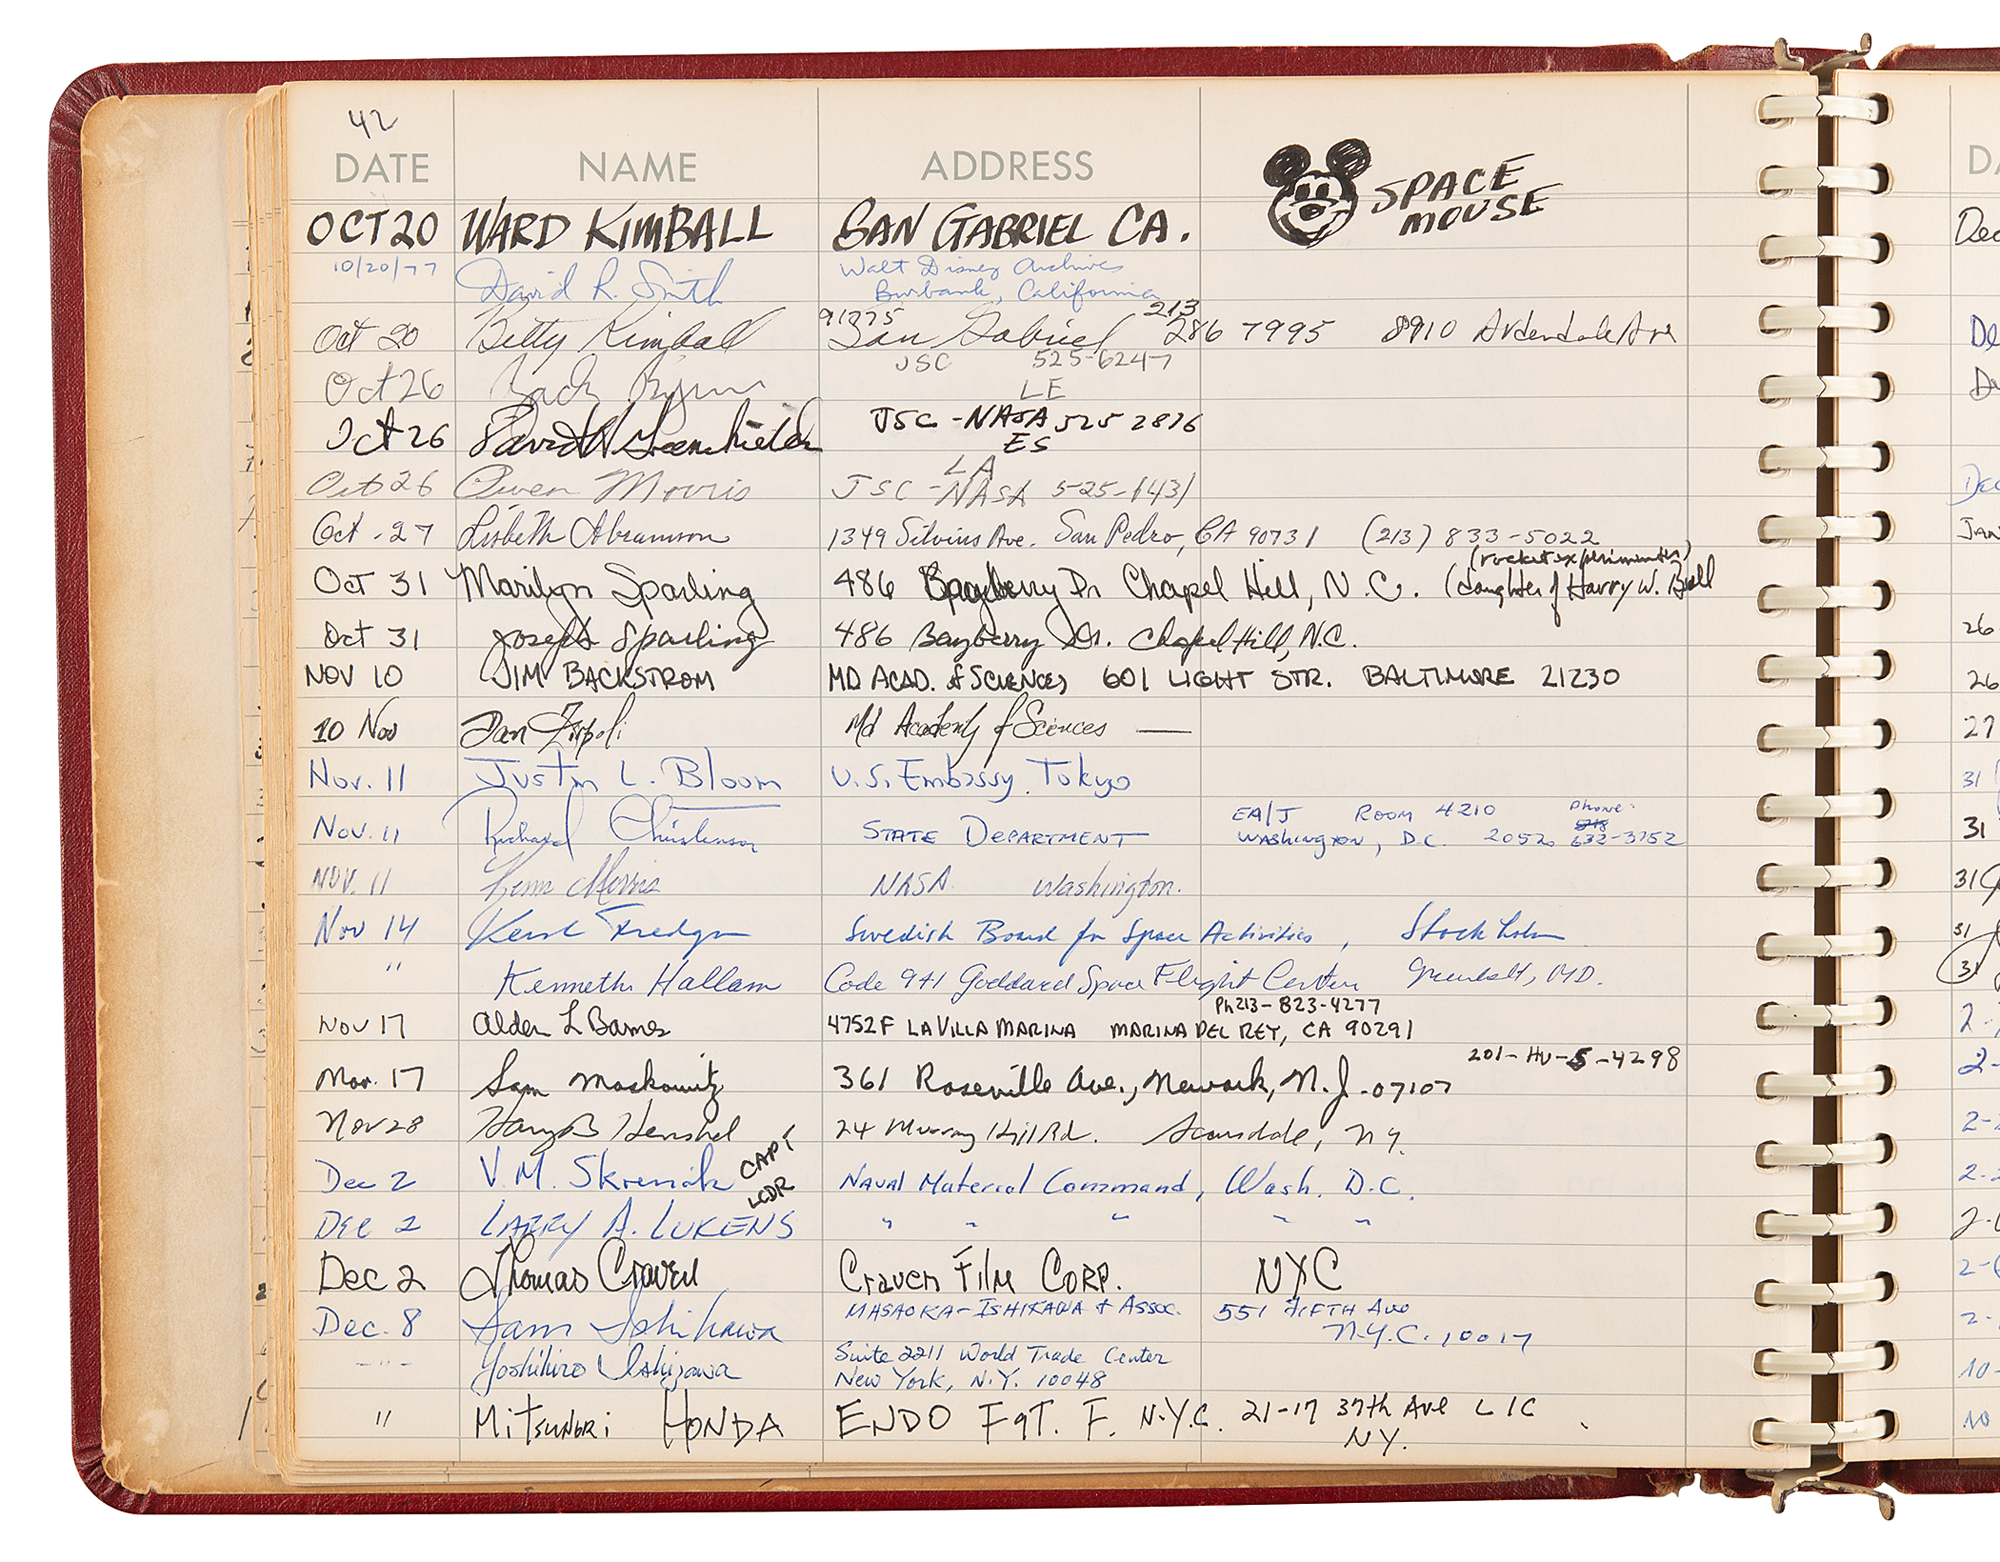 42
DATE NAME ADDRESS
SPACE
MOUSE
OCT 20 WARD KIMBALL SAN GABRIEL CA.
10/20/77 David R. Smith Walt Disney Archives
Burbank, California
Oct 20 Betty Kimball 91775 San Gabriel 213 286 7995 8910 Ardendale Ave
Oct 26 JSC 525-6247
LE
Oct 26 JSC-NASA 525 2876
ES
LA
Oct 26 Owen Morris JSC-NASA 525-1431
Oct. 27 Lisbeth Abramson 1349 Silvius Ave. San Pedro, CA 90731 (213) 833-5022
(rocket experimenter)
Oct 31 Marilyn Sparling 486 Bayberry Dr Chapel Hill, N.C. (daughter of Harry W. Bull
Oct 31 Joseph Sparling 486 Bayberry Dr. Chapel Hill, N.C.
NOV 10 JIM BACKSTROM MD ACAD. of SCIENCES 601 LIGHT STR. BALTIMORE 21230
10 Nov Dan Zirpoli Md Academy of Sciences —
Nov. 11 Justin L. Bloom U.S. Embassy Tokyo
EA/J ROOM 4210 Phone:
Nov. 11 Richard Christenson STATE DEPARTMENT WASHINGTON, D.C. 20520 632-3152
NOV. 11 Morris NASA Washington.
Nov 14 Fredga Swedish Board for Space Activities, Stockholm
" Kenneth Hallam Code 941 Goddard Space Flight Center Greenbelt, MD.
Ph 213-823-4277
Nov 17 Alden L Barnes 4752F LA VILLA MARINA MARINA DEL REY, CA 90291
201-HU-5-4298
Nov. 17 Sam Moskowitz 361 Roseville Ave., Newark, N.J. 07107
Nov 28 Harry B Henshel 24 Murray Hill Rd. Scarsdale, N.Y.
Dec 2 V.M. Skrenak CAPT Naval Material Command, Wash. D.C.
LCDR
DEC 2 LARRY A. LUKENS " " " " "
Dec 2 Thomas Craven Craven Film Corp. NYC
MASAOKA-ISHIKAWA + ASSOC. 551 FIFTH AVE
Dec. 8 Sam Ishikawa N.Y.C. 10017
-"- Yoshihiro Ishizawa Suite 2211 World Trade Center
New York, N.Y. 10048
" MITSUNORI HONDA ENDO FGT. F. N.Y.C. 21-17 37th Ave LIC
NY.